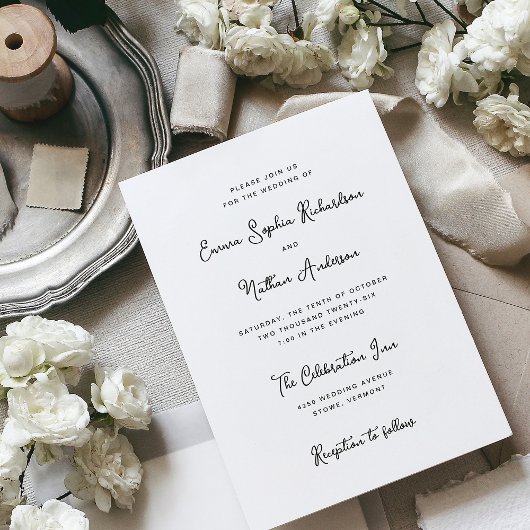 PLEASE JOIN US
FOR THE WEDDING OF
Emma Sophia Richardson
AND
Nathan Anderson
SATURDAY, THE TENTH OF OCTOBER
TWO THOUSAND TWENTY-SIX
7:00 IN THE EVENING
The Celebration Inn
4250 WEDDING AVENUE
STOWE, VERMONT
Reception to follow